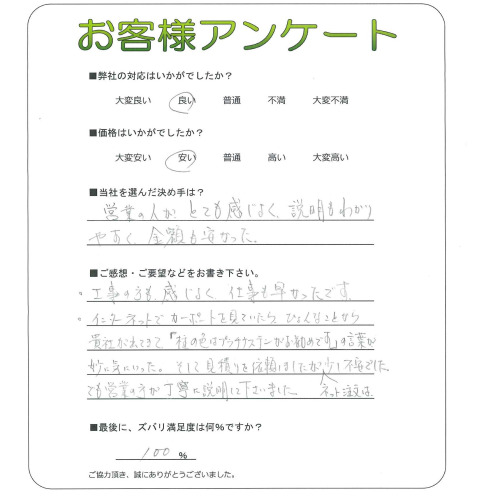 お客様アンケート
■弊社の対応はいかがでしたか？
大変良い 良い 普通 不満 大変不満
■価格はいかがでしたか？
大変安い 安い 普通 高い 大変高い
■当社を選んだ決め手は？
営業の人が、とても感じよく、説明もわかり
やすく、金額も安かった。
■ご感想・ご要望などをお書き下さい。
・工事の方も、感じよく、仕事も早かったです。
・インターネットでカーポートを見ていたら、ひょんなことから
貴社が出てきて、「柱の色はプラチナステンがお勧めです」の言葉が
妙に気にいった。そして見積りを依頼しましたが少し不安でした。
でも営業の方が丁寧に説明して下さいました。 ネット注文は
■最後に、ズバリ満足度は何％ですか？
100 ％
ご協力頂き、誠にありがとうございました。